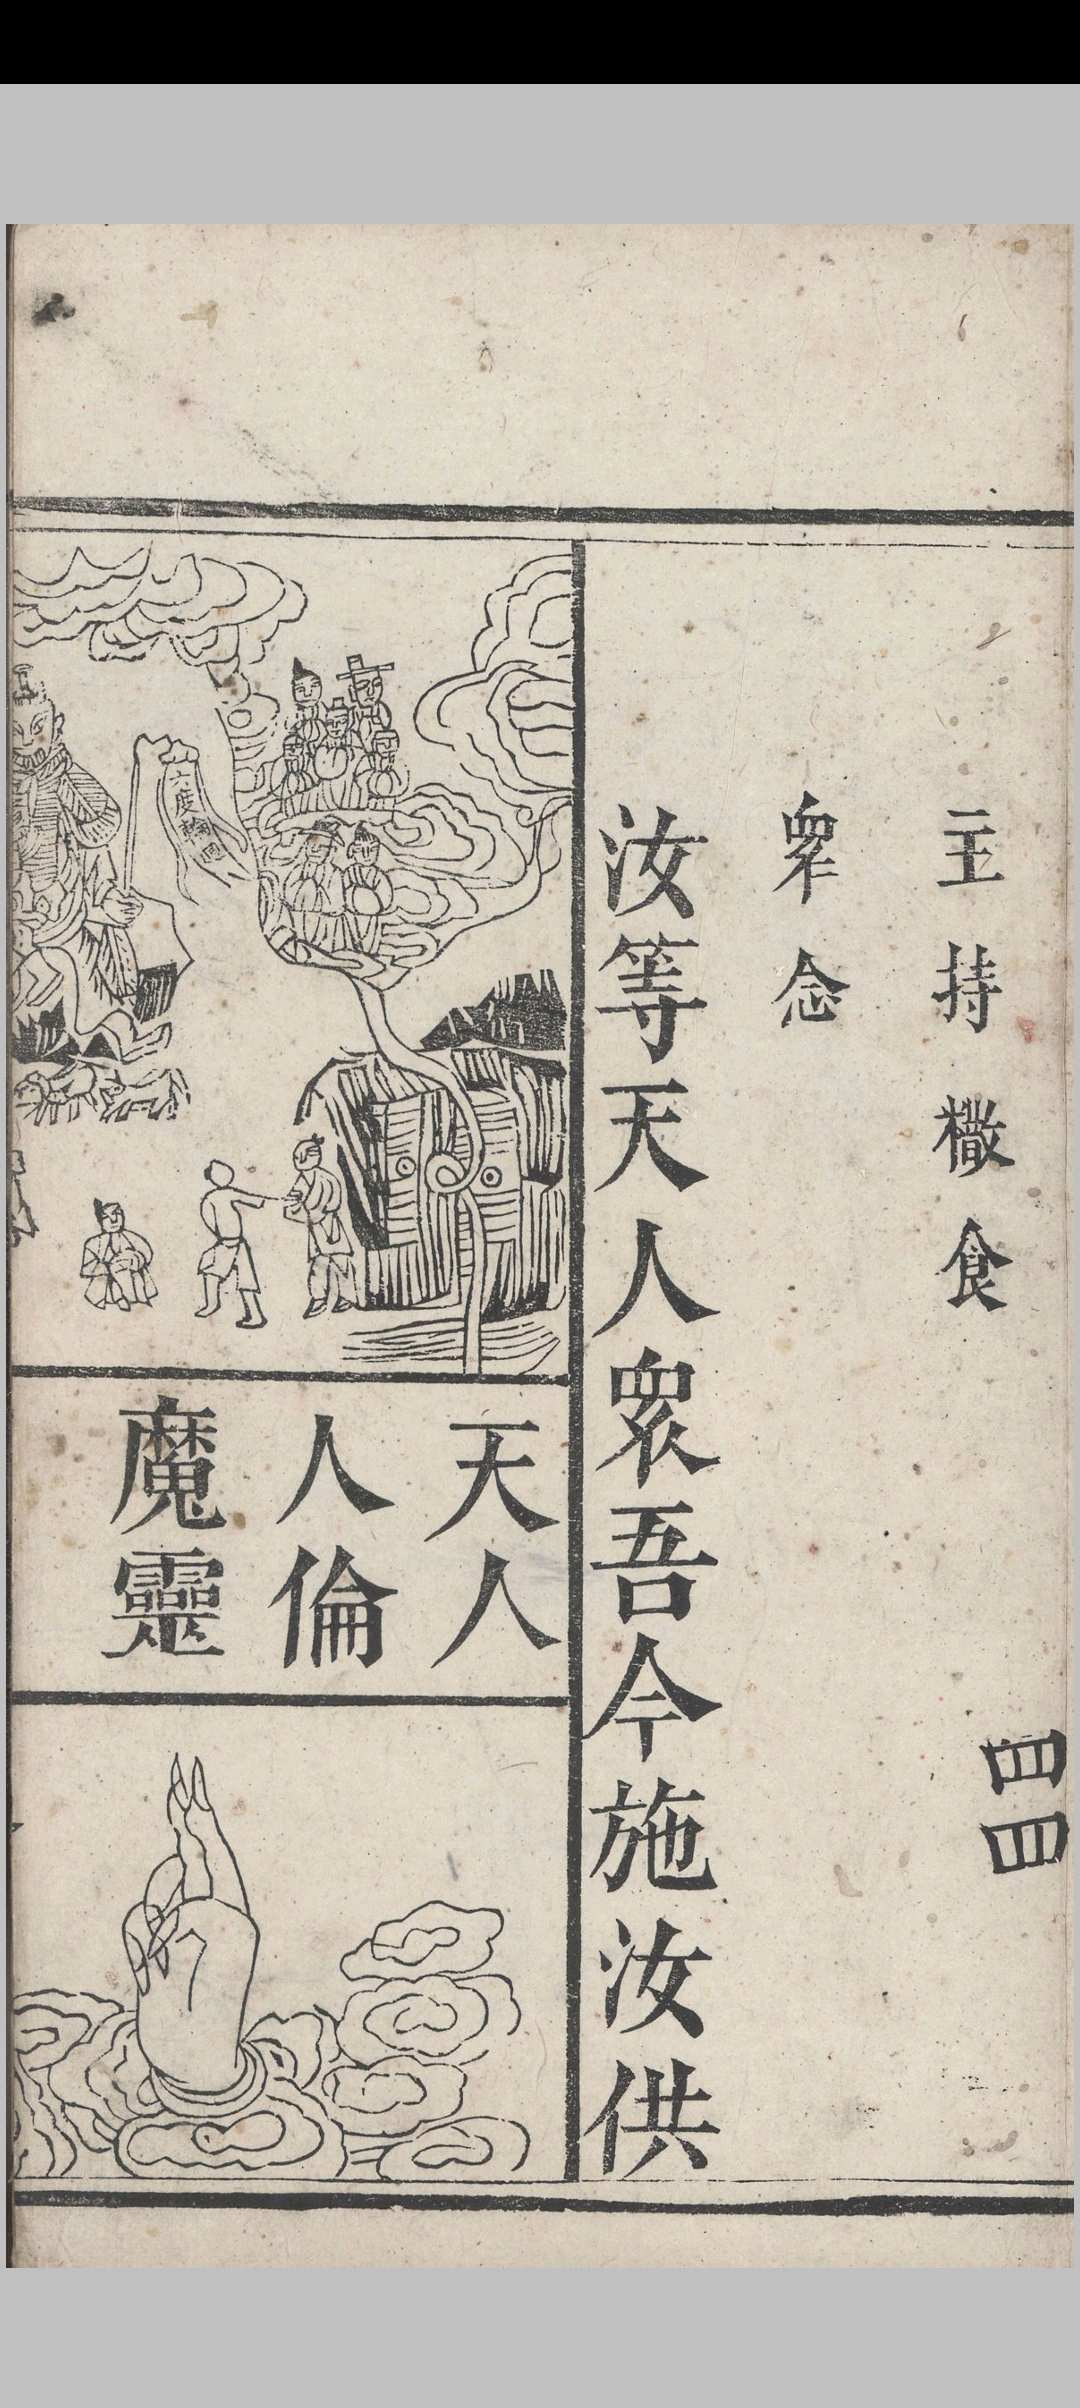 主持撒食
四四
衆念
汝等天人衆吾今施汝供
六度輪回
天人
人倫
魔靈